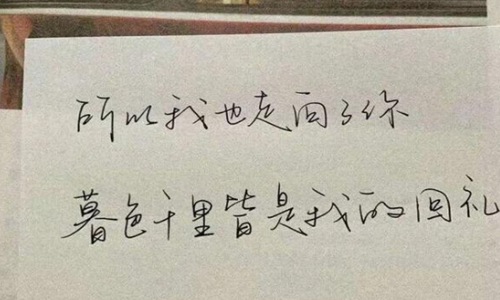 所以我也走向了你
暮色千里皆是我的回礼